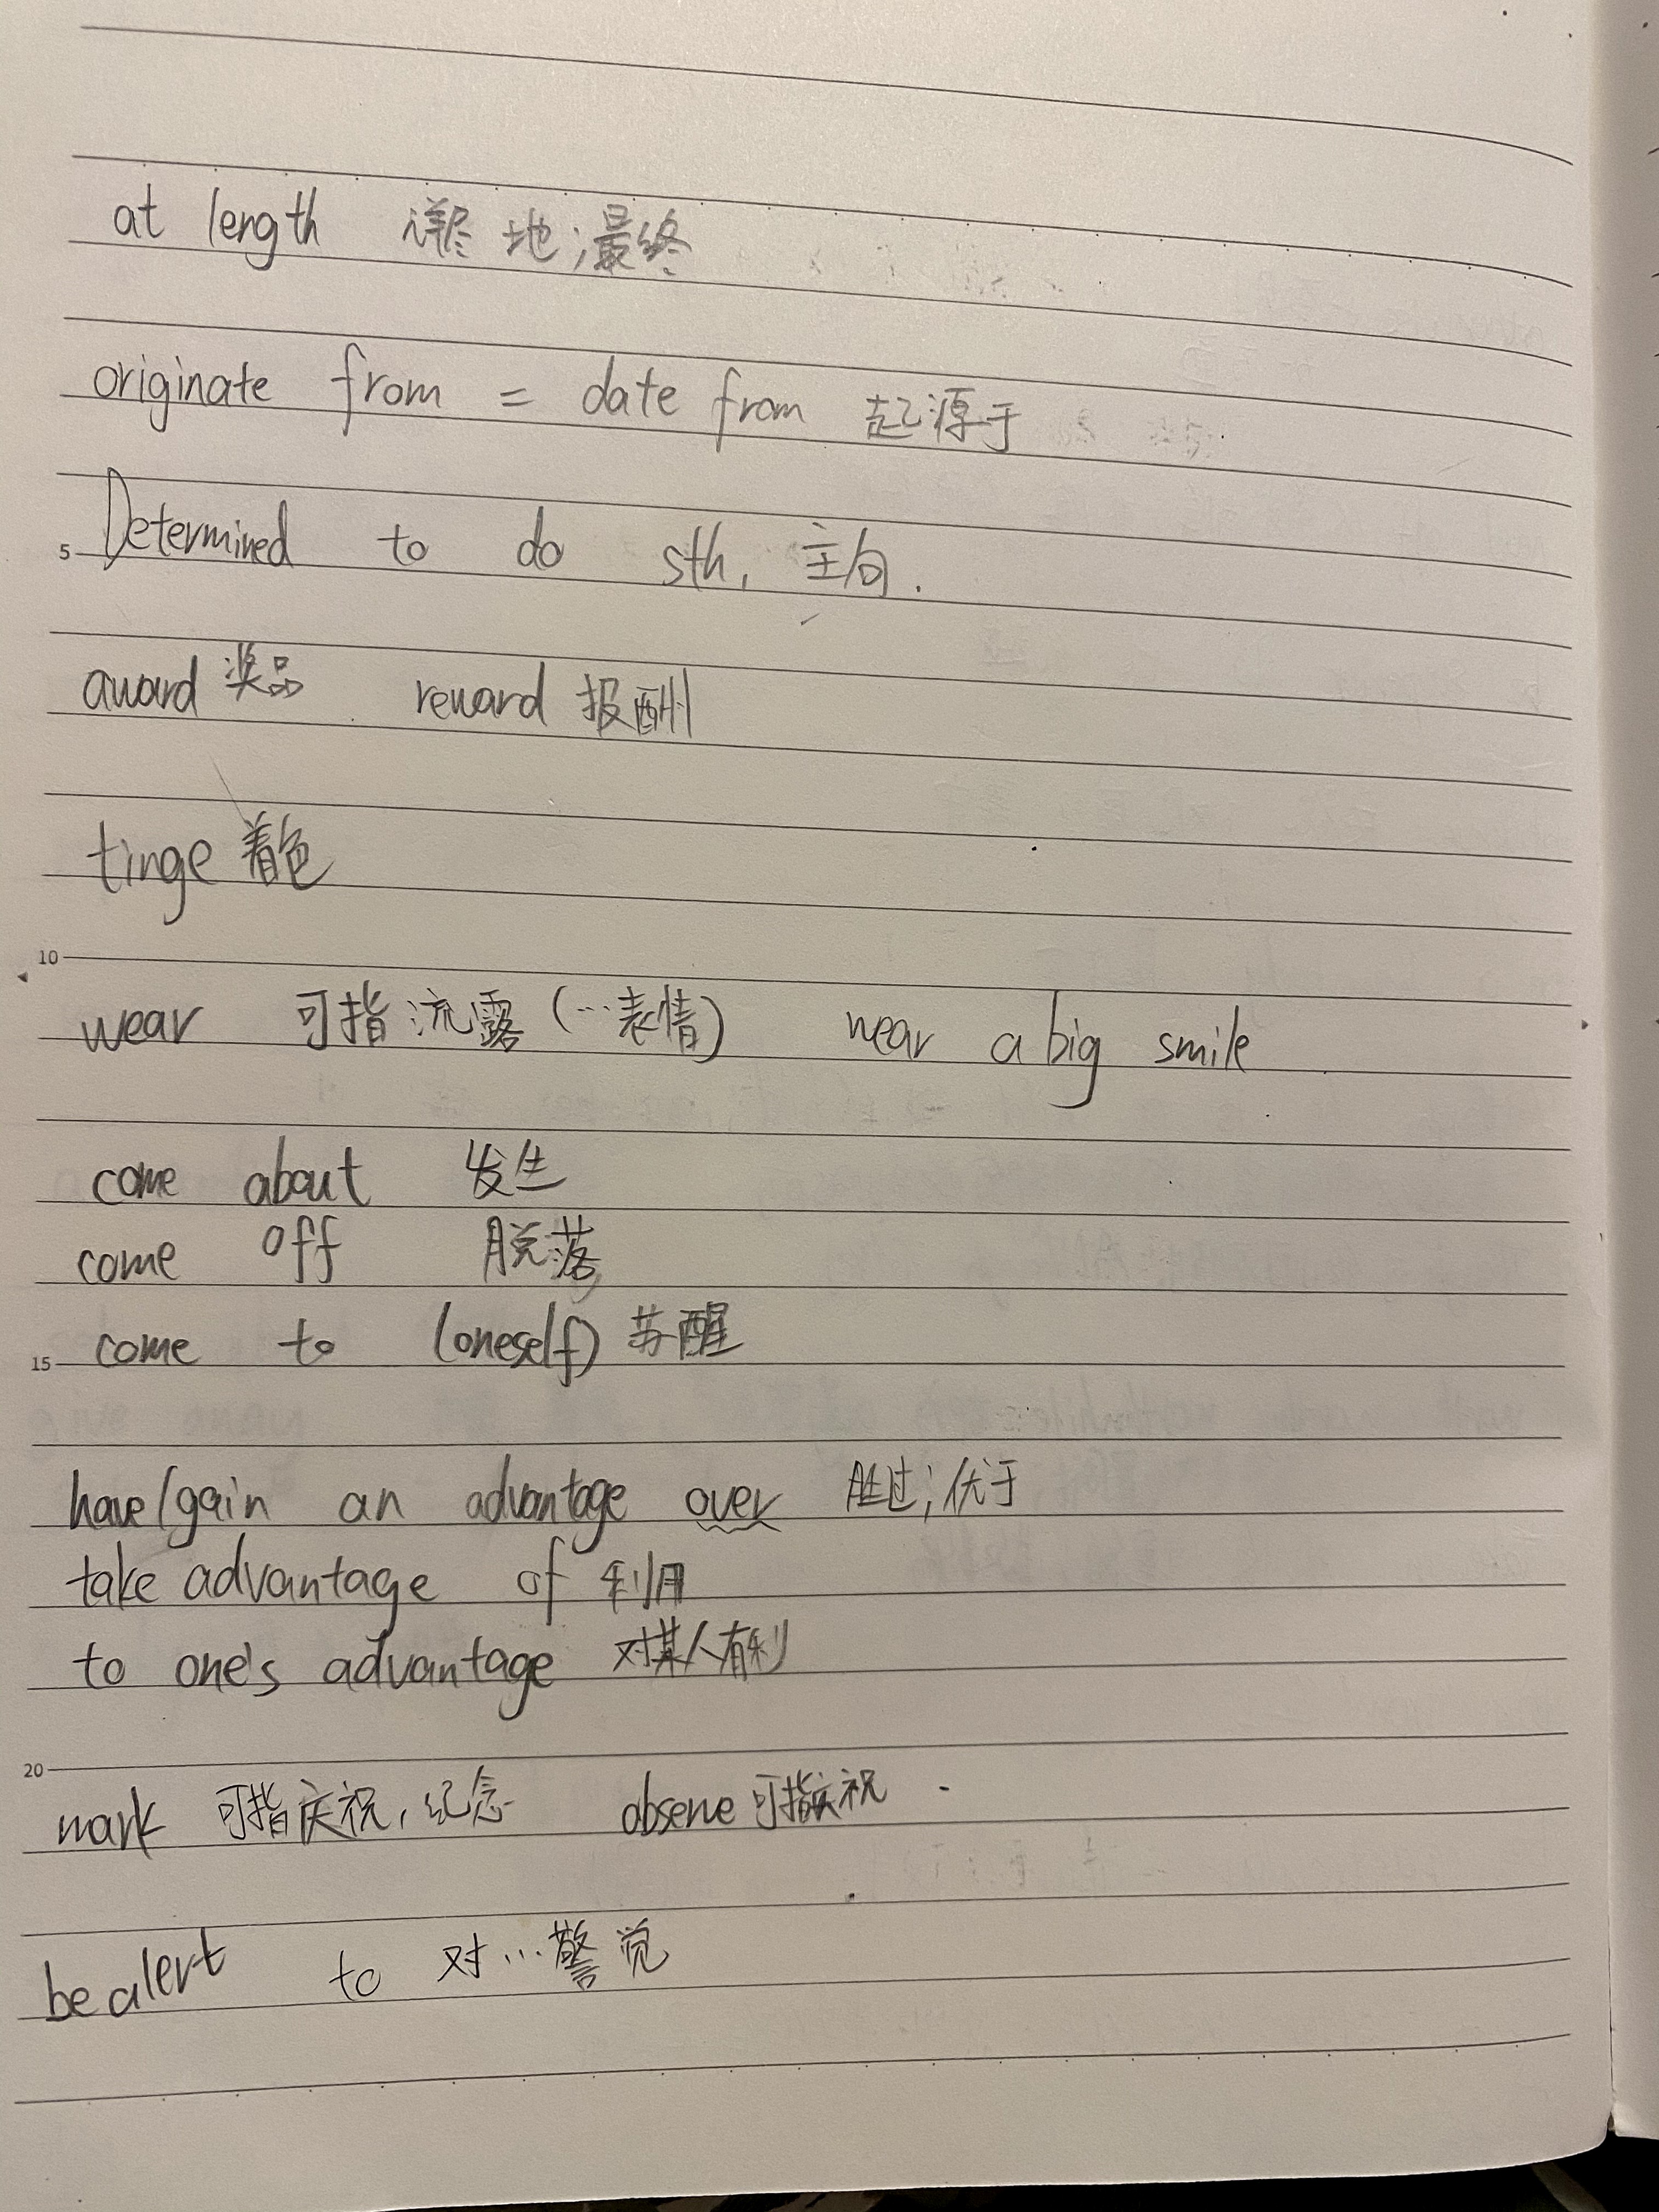 at length 详尽地；最终
originate from = date from 起源于
5 Determined to do sth, 主句.
award 奖品 reward 报酬
tinge 着色
10 wear 可指流露 (…表情) wear a big smile
come about 发生
come off 脱落
15 come to (oneself) 苏醒
have/gain an advantage over 胜过；优于
take advantage of 利用
to one's advantage 对某人有利
20 mark 可指庆祝，纪念 observe 可指庆祝.
be alert to 对…警觉